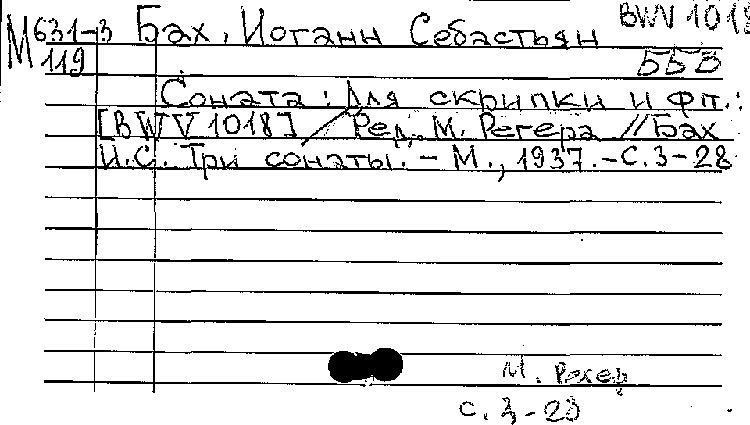 М 631-3 Бах, Иоганн Себастьян BWV 1018
119 ББЗ
Соната: Для скрипки и фп.:
[BWV 1018] / Ред. М. Регера // Бах
И.С. Три сонаты. - М., 1937. - С. 3-28
М. Регер
с. 3-28